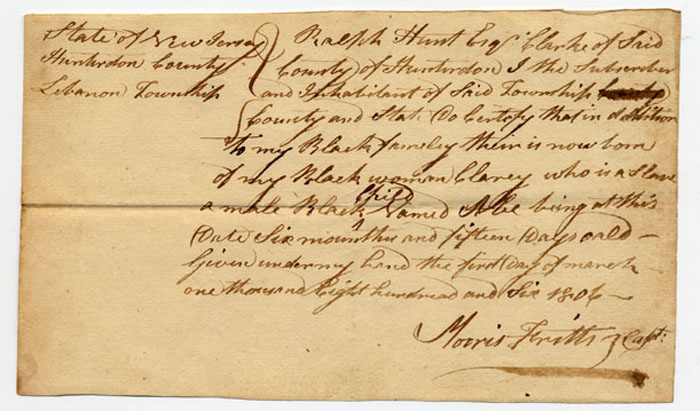 State of New Jersey
Hunterdon County
Lebanon Township
Ralph Hunt Esqr Clarke of Said
County of Hunterdon I the Subscriber
and Inhabitant of Said Township
County and State Do Certify that in addition
to my Black fameley their is now born
of my Black woman Clarey who is a Slave
a male Black Child Named Abe being at this
Date Six mounths and fifteen Days oald –
Given under my hand the first Day of march
one thousand Eight hundred and Six 1806 –
Morris Fritts Capt: